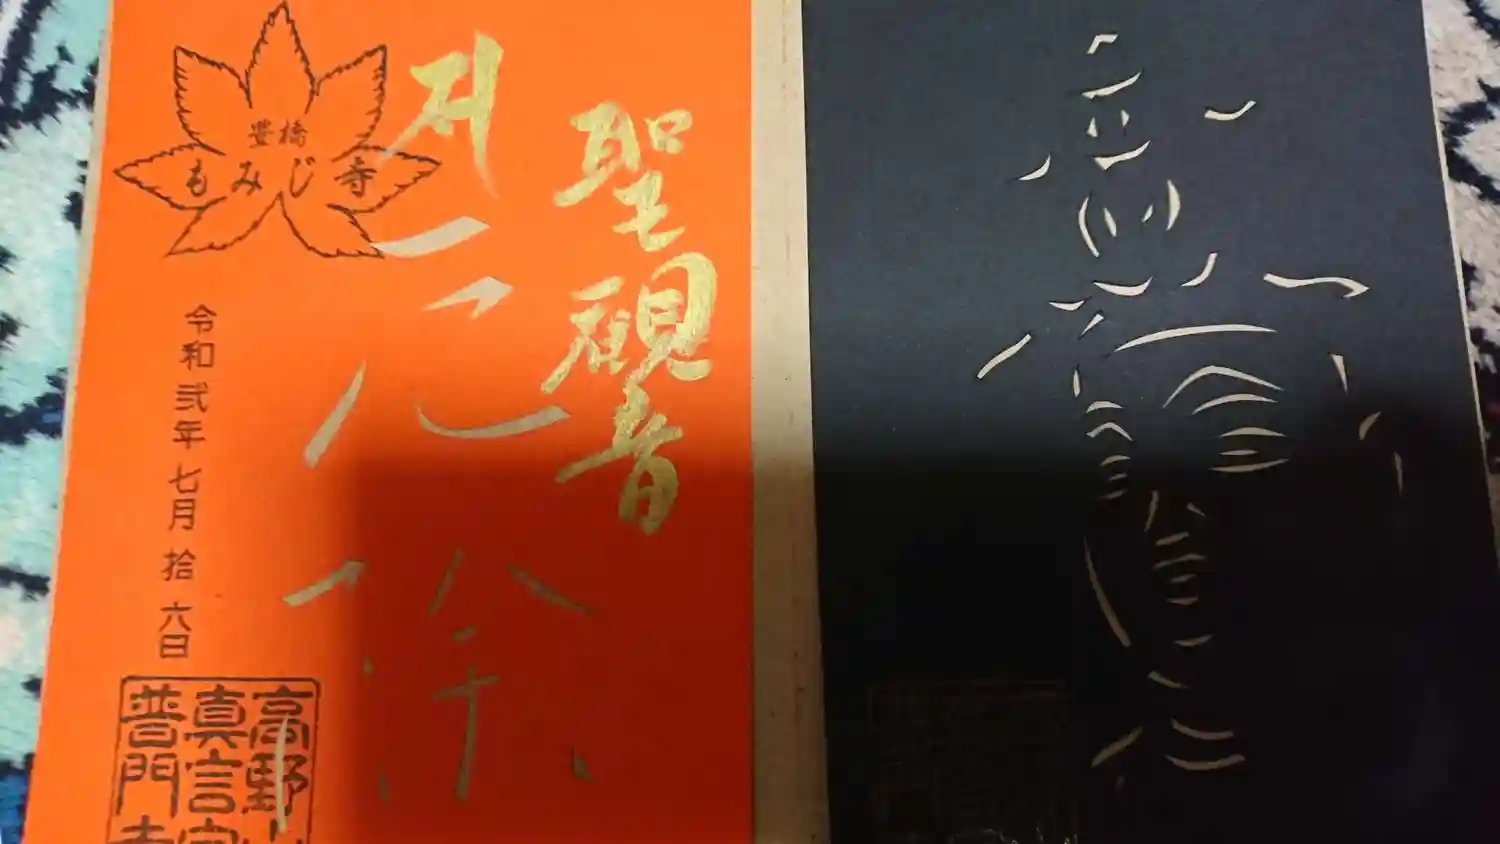 聖観音
豊橋
もみじ寺
令和弐年七月拾六日
高野山
真言宗
普門寺